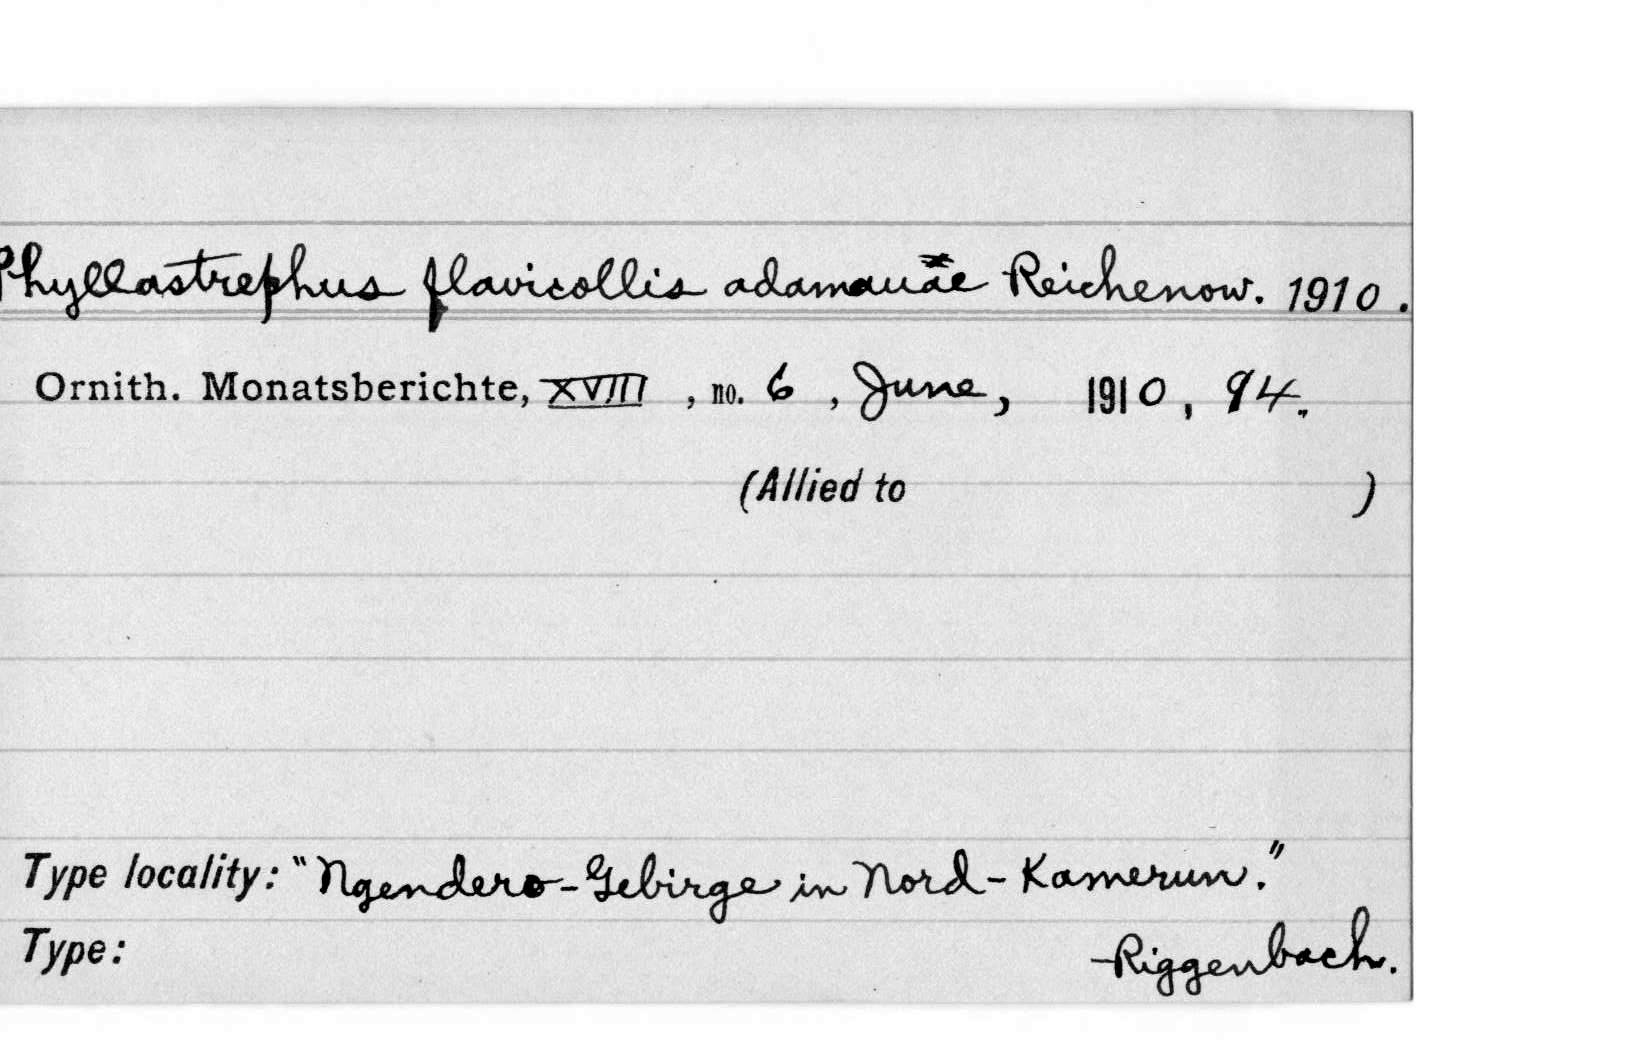 Phyllastrephus flavicollis adamauae Reichenow. 1910.
Ornith. Monatsberichte, XVIII, no. 6, June, 1910, 94.
(Allied to )
Type locality: "Ngendero-Gebirge in Nord-Kamerun."
Type: Riggenbach.